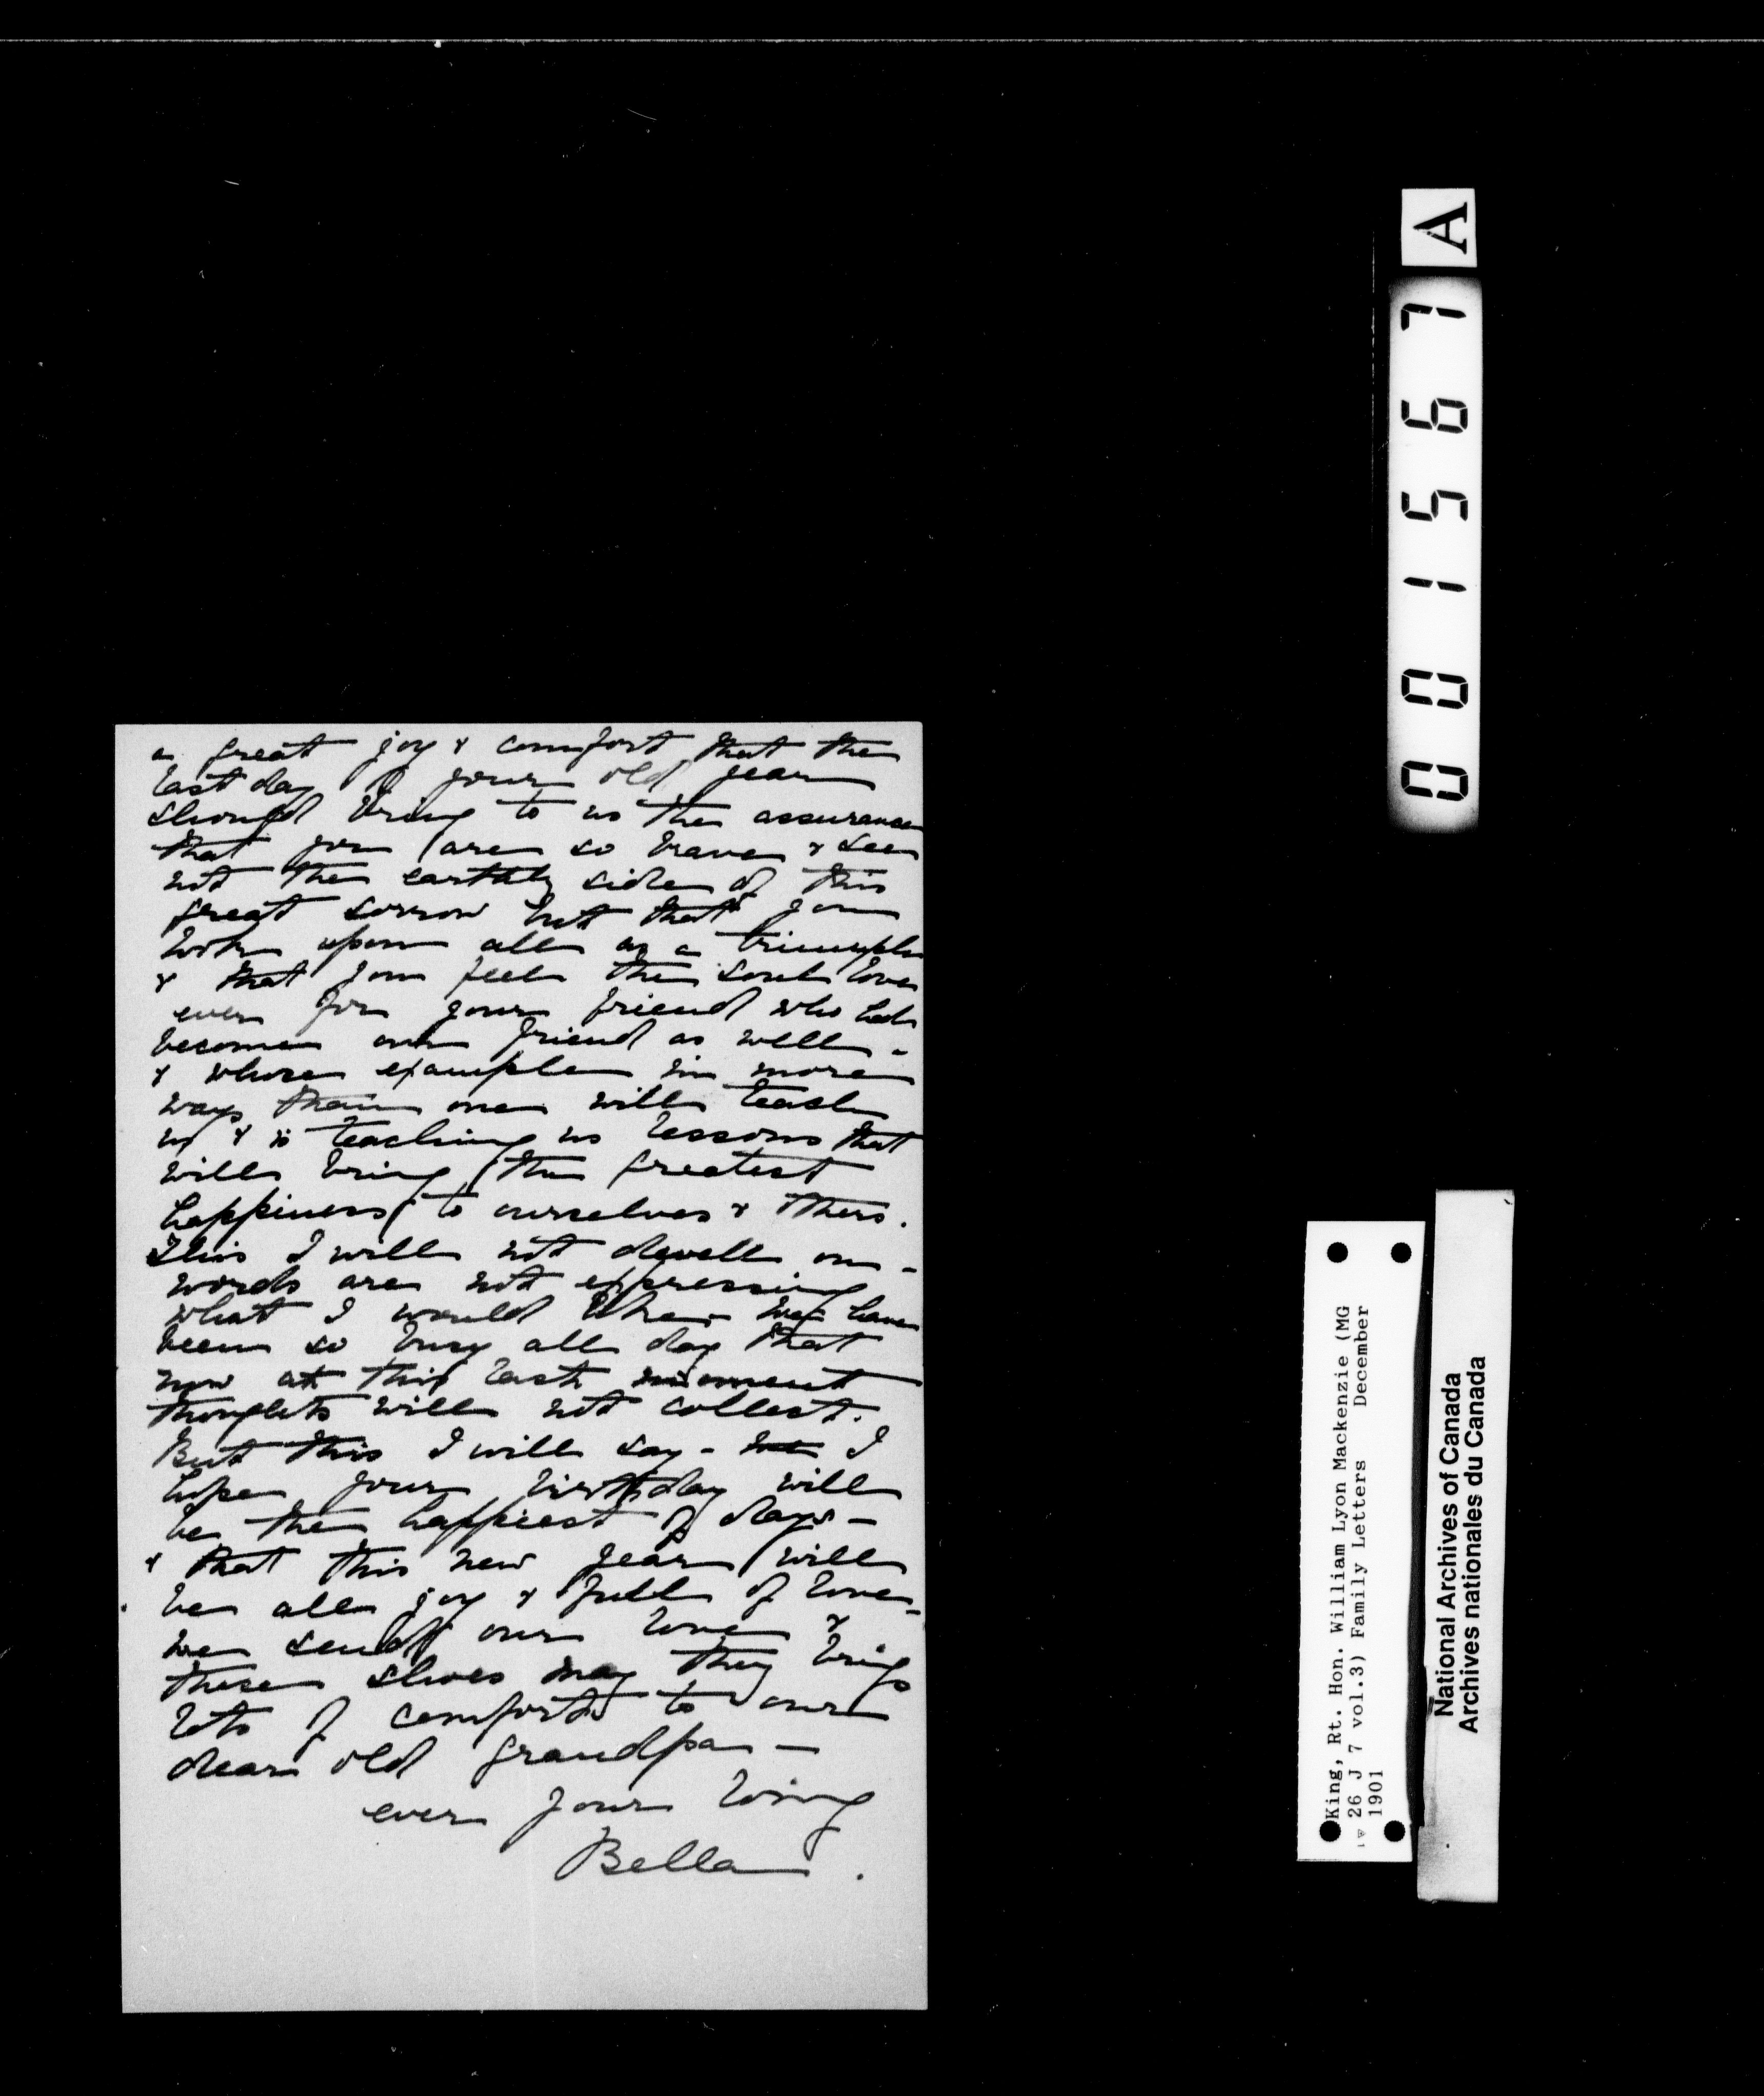 a great joy & comfort that the
last day of your old year
should bring to us the assurance
that you are so brave & see
not the earthly side of this
great sorrow but that you
look upon all as a triumph
& that you feel the soul love
ever for your friend who had
become our friend as well -
& whose example in more
ways than one will teach
us & is teaching us lessons that
will bring the greatest
happiness to ourselves & others.
This I will not dwell on -
words are not expressing
what I would like - we have
been so busy all day that
now at this last moment
thoughts will not collect.
But this I will say - I
hope your birthday will
be the happiest of days -
& that this new year will
be all joy & full of love -
we send our love &
these shoes may they bring
lots of comfort to our
dear old grandpa -
ever your loving
Bella.
001567 A
King, Rt. Hon. William Lyon Mackenzie (MG
26 J 7 vol.3) Family Letters December
1901
National Archives of Canada
Archives nationales du Canada